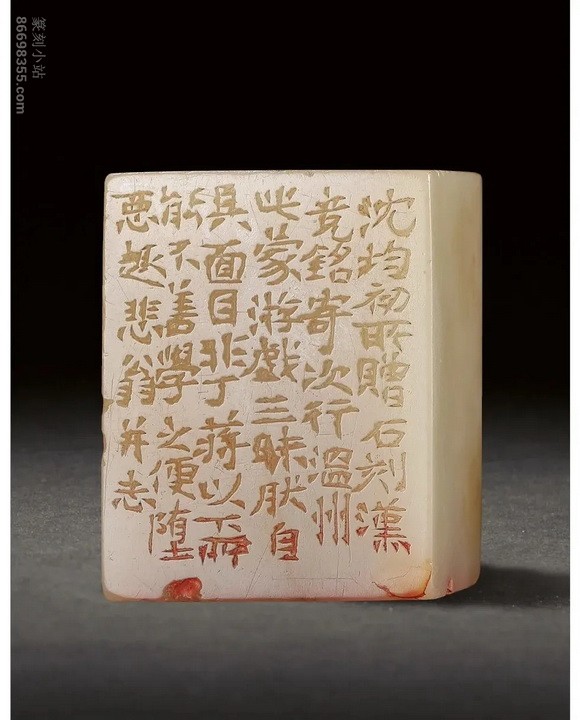 沈均初所贈石刻漢
竟銘寄次行溫州
此蒙游戲三昧肰自
具面目非丁蔣以下所
能不善學之便墮
悪趣悲翁并志
篆刻小站
86698355.com